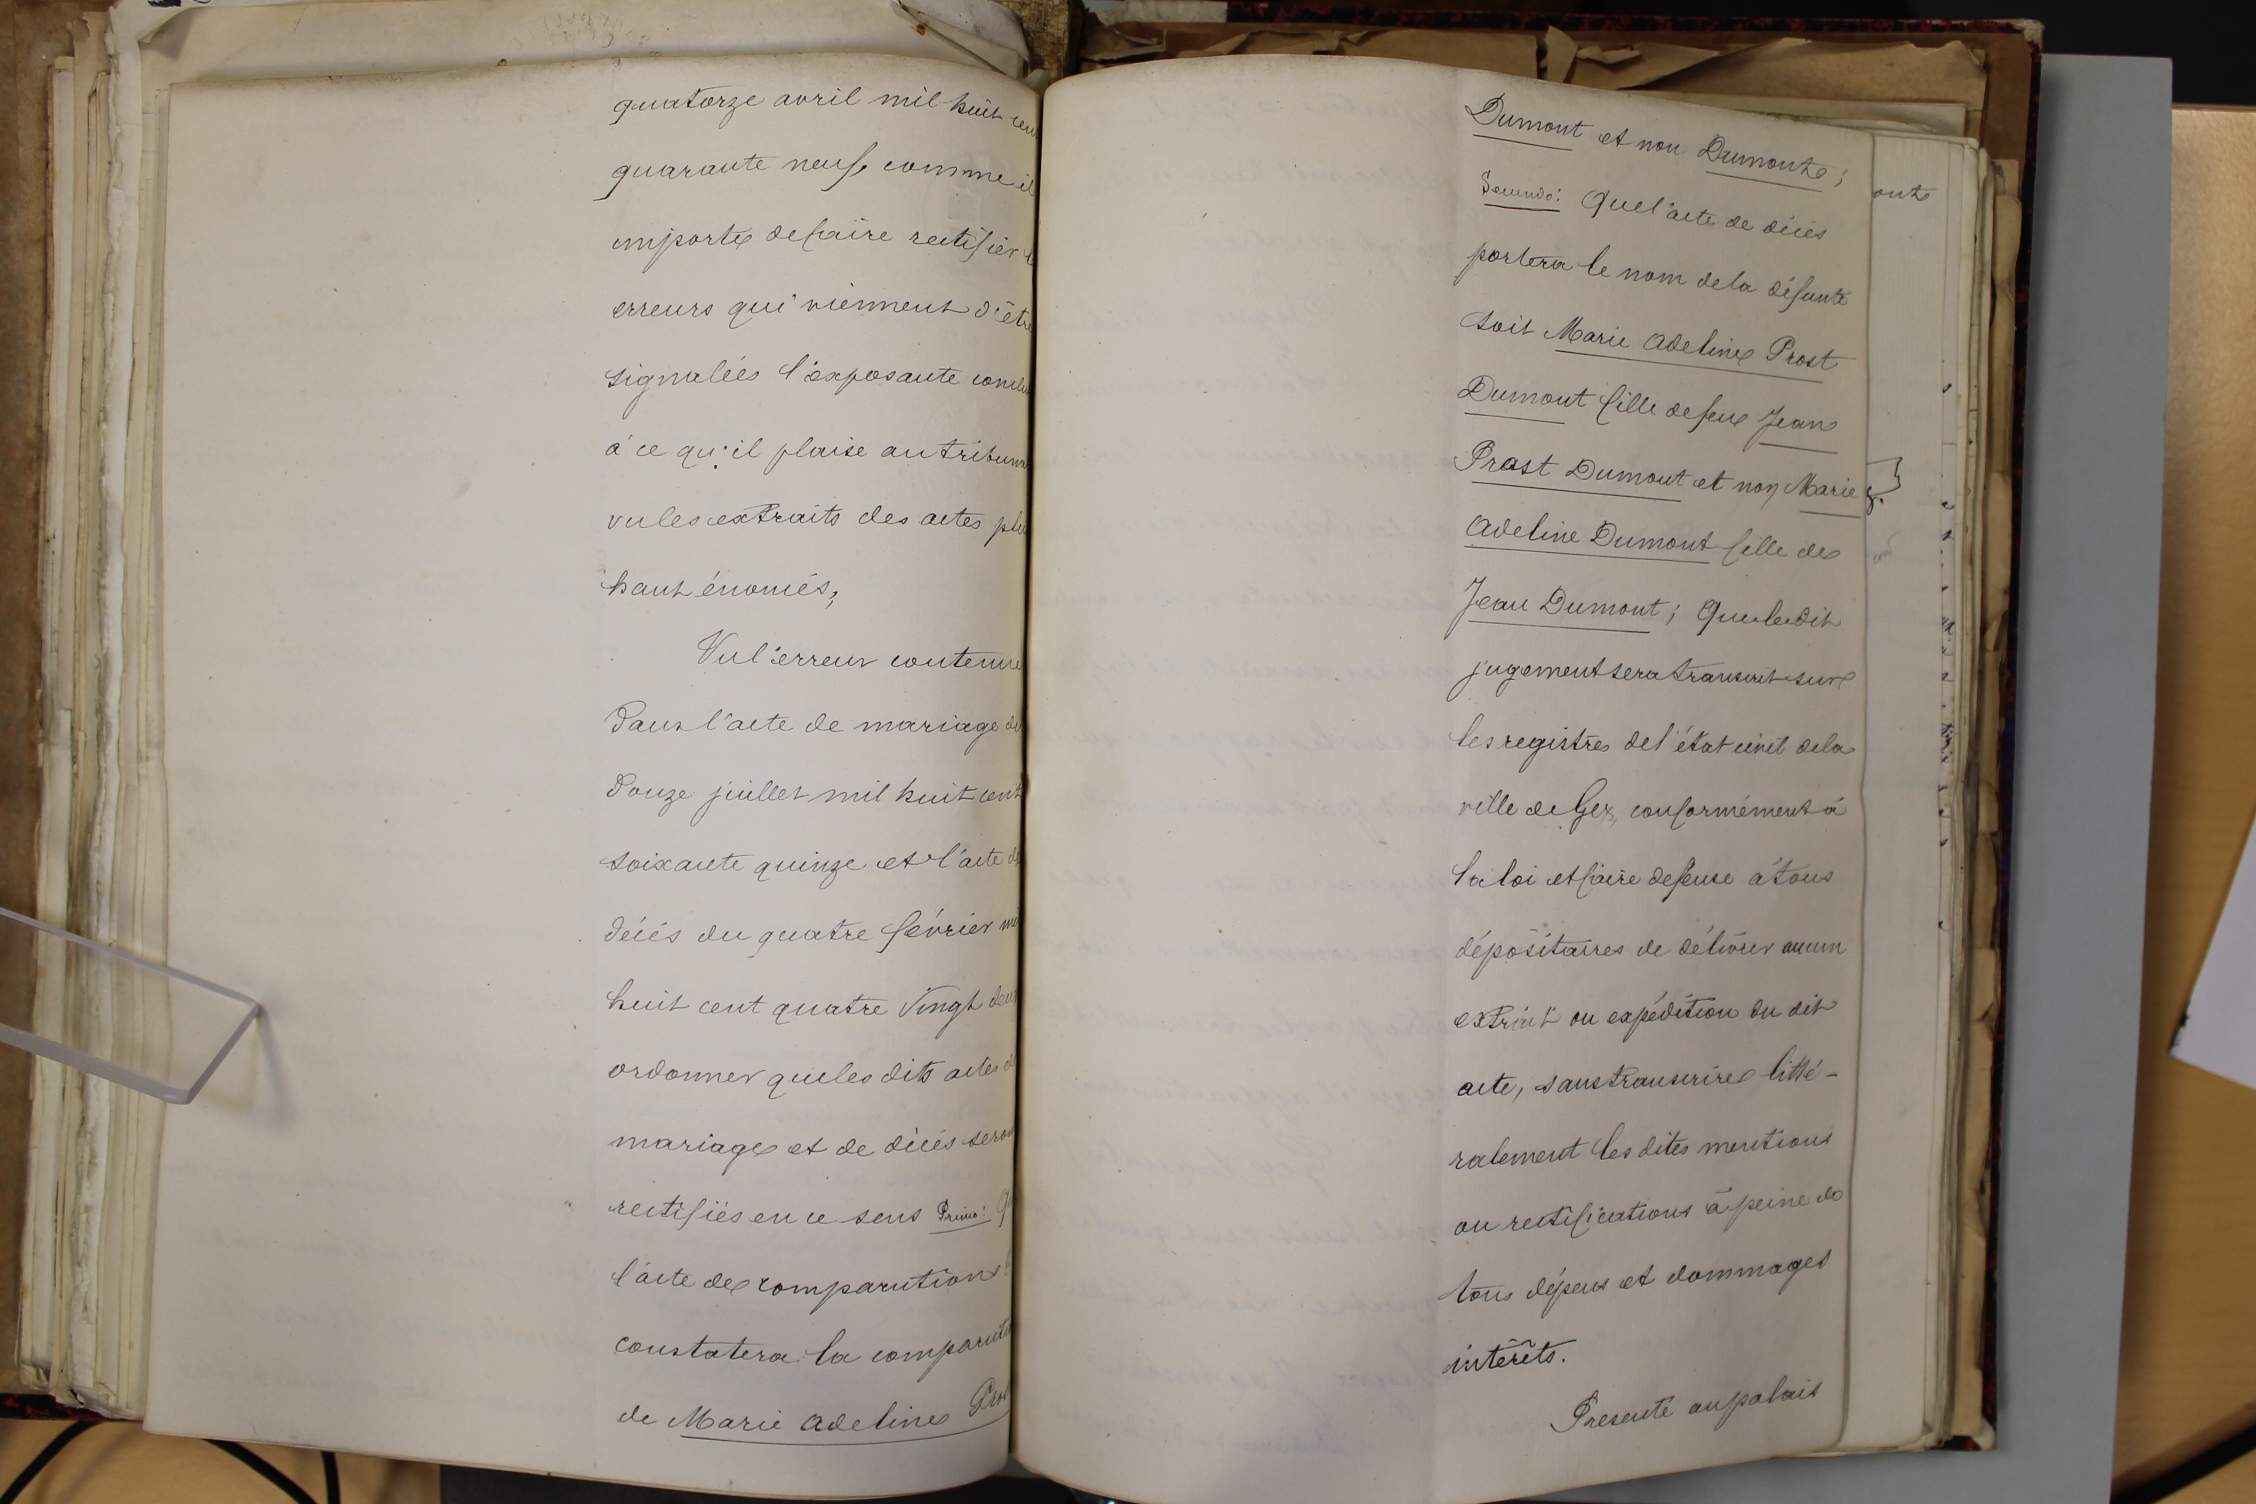 quatorze avril mil huit cent
quarante neuf comme il
importe de faire rectifier
erreurs qui viennent d'être
signalées l'exposante conclu
à ce qu'il plaise au tribunal
vu les extraits des actes plus
haut énoncés;
Vu l'erreur contenue
Dans l'acte de mariage du
Douze juillet mil huit cent
soixante quinze et l'acte de
décés du quatre février mil
huit cent quatre Vingt deux
ordonner que les dits actes de
mariage et de décés seront
rectifiés en ce sens Primo: Que
l'acte de comparution
constatera la comparution
de Marie Adeline Prost
Dumont et non Dumont;
Secundo: Que l'acte de décés
portera le nom de la défunte
soit Marie Adeline Prost
Dumont fille de feu Jean
Prost Dumont et non Marie
Adeline Dumont fille de
Jean Dumont; Que le dit
jugement sera transcrit sur
les registres de l'état civil de la
ville de Gex, conformément à
la loi et faire defense à tous
dépositaires de délivrer aucun
extrait ou expédition du dit
acte, sans transcrire litté-
ralement les dites mentions
ou rectifications à peine de
tous dépens et dommages
intérêts.
Presenté au palais